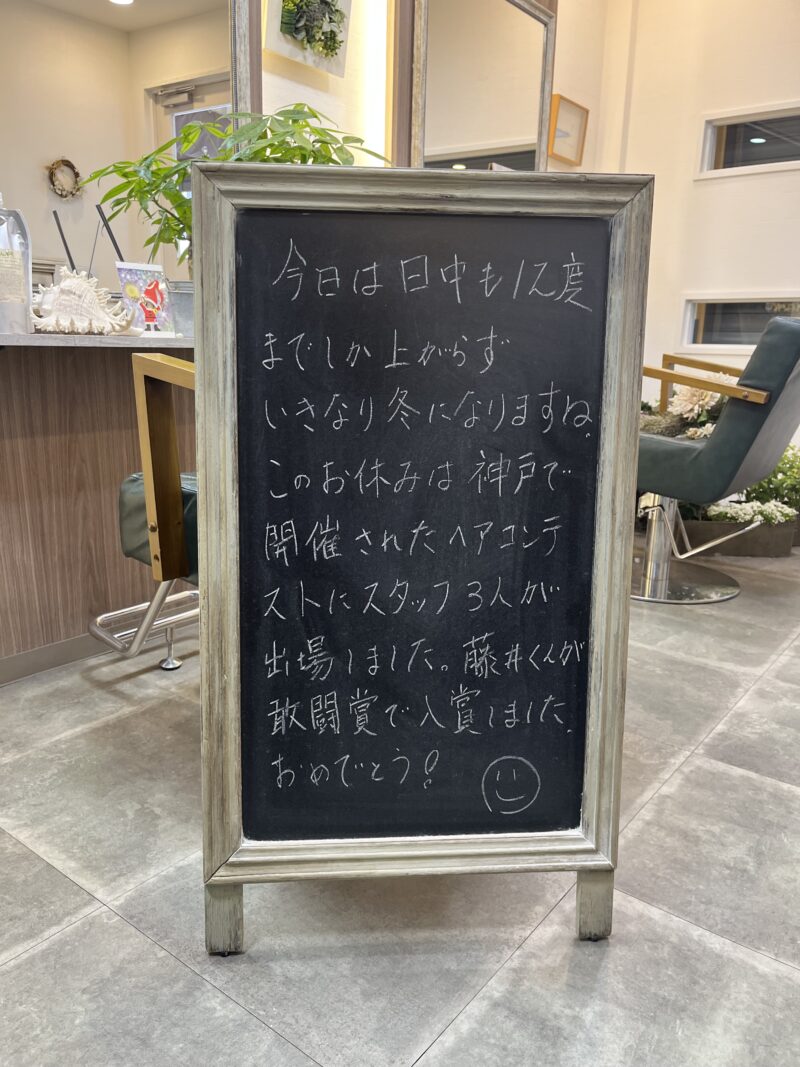 今日は日中も12度
までしか上がらず
いきなり冬になりますね。
このお休みは神戸で
開催されたヘアコンテ
ストにスタッフ3人が
出場しました。藤井くんが
敢闘賞で入賞しました。
おめでとう!